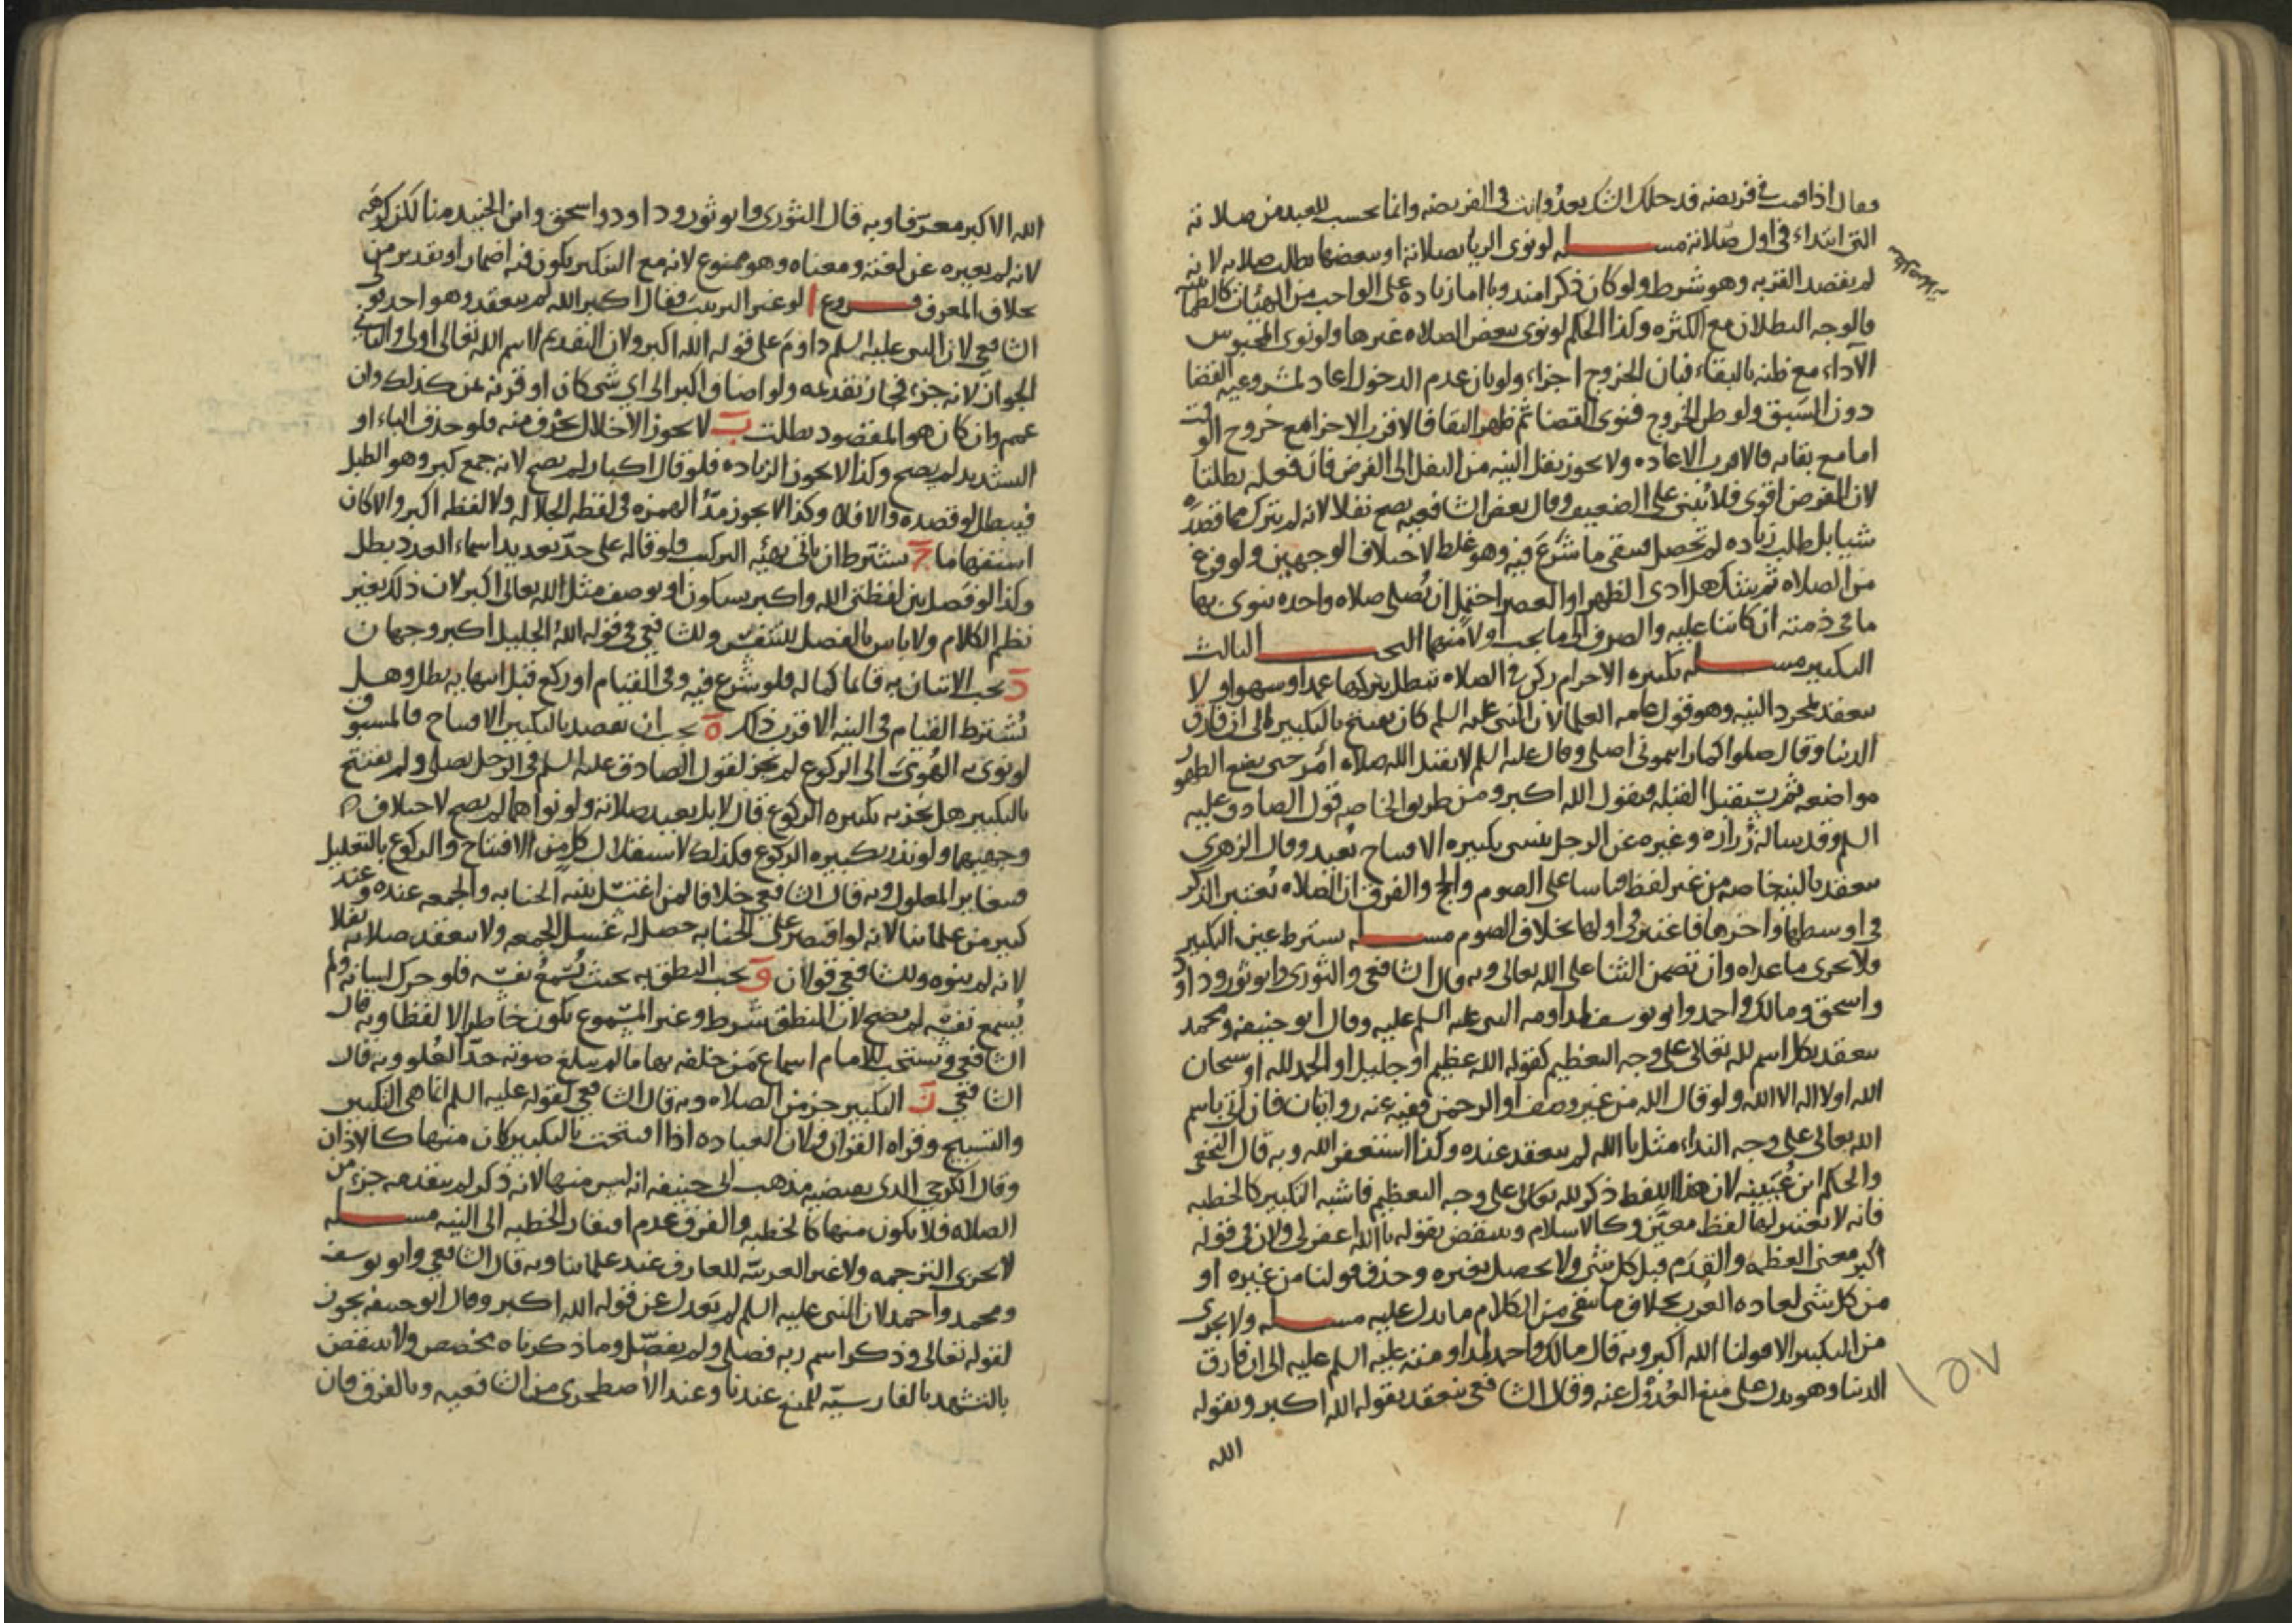 فقال اذا قمت في فريضه فدخلك الشك بعد وانت في الفريضه وانما يحسب للعبد من صلاته
التي ابتداء في اول صلاته مسله لو نوى الريا بصلاته او ببعضها بطلت صلاته لانه
لم يقصد القربه وهو شرط ولو كان ذكرا مندوبا اما زياده على الواجب من الهيئات كالطمانينه
فالوجه البطلان مع الكثره وكذا الحكم لو نوى ببعض الصلاه غيرها ولو نوى المحبوس
الاداء مع ظنه بالبقاء فبان الخروج اجزاء ولو بان عدم الدخول اعاد لمشروعيه القضا
دون السبق ولو ظن الخروج فنوى القضا ثم ظهر البقا فالاقرب الاجزا مع خروج الوقت
اما مع بقايه فالاقرب الاعاده ولا يجوز نقل النيه من النفل الى الفرض فان فعله بطلتا
لان الفرض اقوى فلا يبنى على الضعيف وقال بعض الشافعيه يصح نفلا لانه لم يترك مما قصده
شيا بل طلب زياده لم تحصل فبقى ما شرع فيه وهو غلط لاختلاف الوجهين ولو فرغ
من الصلاه ثم شك هل ادى الظهر او العصر احتمل ان يصلى صلاه واحده ينوى بها
ما في ذمته ان كانتا عليه والصرف الى ما يجب اولا منهما البحث الثالث
التكبير مسله تكبيره الاحرام ركن في الصلاه تبطل بتركها عمدا وسهوا ولا
تنعقد بمجرد النيه وهو قول عامه العلما لان النبي عليه السلم كان يفتتح بالتكبير الى ان فارق
الدنيا وقال صلوا كما رايتموني اصلي وقال عليه السلم لا يقبل الله صلاه امرء حتى يضع الطهور
مواضعه ثم يستقبل القبله فيقول الله اكبر ومن طريق الخاصه قول الصادق عليه
السلم وقد ساله زراره وغيره عن الرجل ينسى تكبيره الافتتاح يعيد وقال الزهري
تنعقد بالنيه خاصه من غير لفظ قياسا على الصوم والحج والفرق ان الصلاه يعتبر الذكر
في اوسطها واخرها فاعتبر في اولها بخلاف الصوم مسله يشترط عين التكبير
ولا يجزى ما عداه وان تضمن الثنا على الله تعالى وبه قال الشافعي والثورى وابو ثور وداود
واسحق ومالك واحمد وابو يوسف لمداومه النبي عليه السلم عليه وقال ابو حنيفه ومحمد
تنعقد بكل اسم لله تعالى على وجه التعظيم كقوله الله عظيم او جليل او الحمد لله او سبحان
الله او لا اله الا الله ولو قال الله من غير وصف او الرحمن ففيه عنه روايتان فان اتى باسم
الله تعالى على وجه النداء مثل يا الله لم تنعقد عنده وكذا استغفر الله وبه قال النخعى
والحكم ابن عيينه لان هذا اللفظ ذكر لله تعالى على وجه التعظيم فاشبه التكبير كالخطبه
فانه لا يعتبر لها لفظ معين وكالاسلام وينتقض بقوله يا الله اغفر لى ولان في قوله
اكبر معنى العظمه والقدم قبل كل شى ولا يحصل بغيره وحذف قولنا من غيره او
من كل شى لعاده العرب بخلاف ما بقى من الكلام ما يدل عليه مسله ولا يجزى
من التكبير الا قولنا الله اكبر وبه قال مالك واحمد لمداومته عليه السلم عليه الى ان فارق
الدنيا وهو يدل على منع العدول عنه وقال الشافعي ينعقد بقوله الله اكبر وبقوله
الله
١٥٧
الله الاكبر معرفا وبه قال الثورى وابو ثور وداود واسحق وابن الجنيد منا لكن كرهه
لانه لم يغيره عن لفته ومعناه وهو ممنوع لانه مع التنكير يكون فيه اضمار او تقدير من
بخلاف المعرف فروع ا لو غير الترتيب فقال اكبر الله لم ينعقد وهو احد قولى
الشافعي لان النبي عليه السلم داوم على قوله الله اكبر ولان التقديم لاسم الله تعالى اولى والثاني
الجواز لانه جزء فجاز تقدمه ولو اضاف اكبر الى اي شى كان او قرنه بمن كذلك وان
عمم وان كان هو المقصود بطلت ب لا يجوز الاخلال بحرف منه فلو حذف الباء او
التشديد لم يصح وكذا لا يجوز الزياده فلو قال اكبار لم يصح لانه جمع كبر وهو الطبل
فيبطل لو قصده والا فلا وكذا لا يجوز مد الهمزه في لفظه الجلاله ولا لفظه اكبر والا كان
استفهاما ج يشترط ان ياتى بهيئه التركيب فلو قاله على حد تعديد اسماء العدد بطل
وكذا لو فصل بين لفظتى الله واكبر بسكون او بوصف مثل الله تعالى اكبر لان ذلك يغير
نظم الكلام ولا باس بالفصل للتنفس وللشافعي في قوله الله الجليل اكبر وجهان
د يجب الاتيان به قايما كما له فلو شرع فيه وفى القيام او ركع قبل انتهايه بطل وهل
يشترط القيام في النيه الاقرب ذلك ه يجب ان يقصد بالتكبير الافتتاح فالمسبوق
لو نوى به الهوى الى الركوع لم يجز لقول الصادق عليه السلم في الرجل يصلى ولم يفتتح
بالتكبير هل يجزيه تكبيره الركوع قال لا بل يعيد صلاته ولو نواهما لم يصح لاختلاف
وجهيهما ولو نذر تكبيره الركوع فكذلك لاستقلال كل من الافتتاح والركوع بالتعليل
فتغاير المعلول وبه قال الشافعي خلافا لمن اغتسل بنيه الجنابه والجمعه عنده وعند
كثير من علمائنا لانه لو اقتصر على الجنابه حصل له غسل الجمعه ولا تنعقد صلاته نفلا
لانه لم ينوه وللشافعي قولان و يجب النطق به بحيث يسمع نفسه فلو حرك لسانه ولم
يسمع نفسه لم يصح لان النطق شرط وغير المسموع يكون خاطرا لا لفظا وبه قال
الشافعي ويستحب للامام اسماع من خلفه بها ما لم يبلغ صوته حد العلو وبه قال
الشافعي ز التكبير جزء من الصلاه وبه قال الشافعي لقوله عليه السلم انما هى التكبير
والتسبيح وقراه القران ولان العباده اذا افتتحت بالتكبير كان منها كالاذان
وقال الكرخى الذى يقتضيه مذهب ابي حنيفه انه ليس منها لانه ذكر لم يتقدمه جزء من
الصلاه فلا يكون منها كالخطبه والفرق عدم افتقار الخطبه الى النيه مسله
لا يجزى الترجمه ولا غير العربيه للعارف عند علمائنا وبه قال الشافعي وابو يوسف
ومحمد واحمد لان النبي عليه السلم لم يعدل عن قوله الله اكبر وقال ابو حنيفه يجوز
لقوله تعالى وذكر اسم ربه فصلى ولم يفصل وما ذكرناه يخصص ولا ينتقض
بالتشهد بالفارسيه للمنع عندنا وعند الاصطخرى من الشافعيه وبالفرق فان